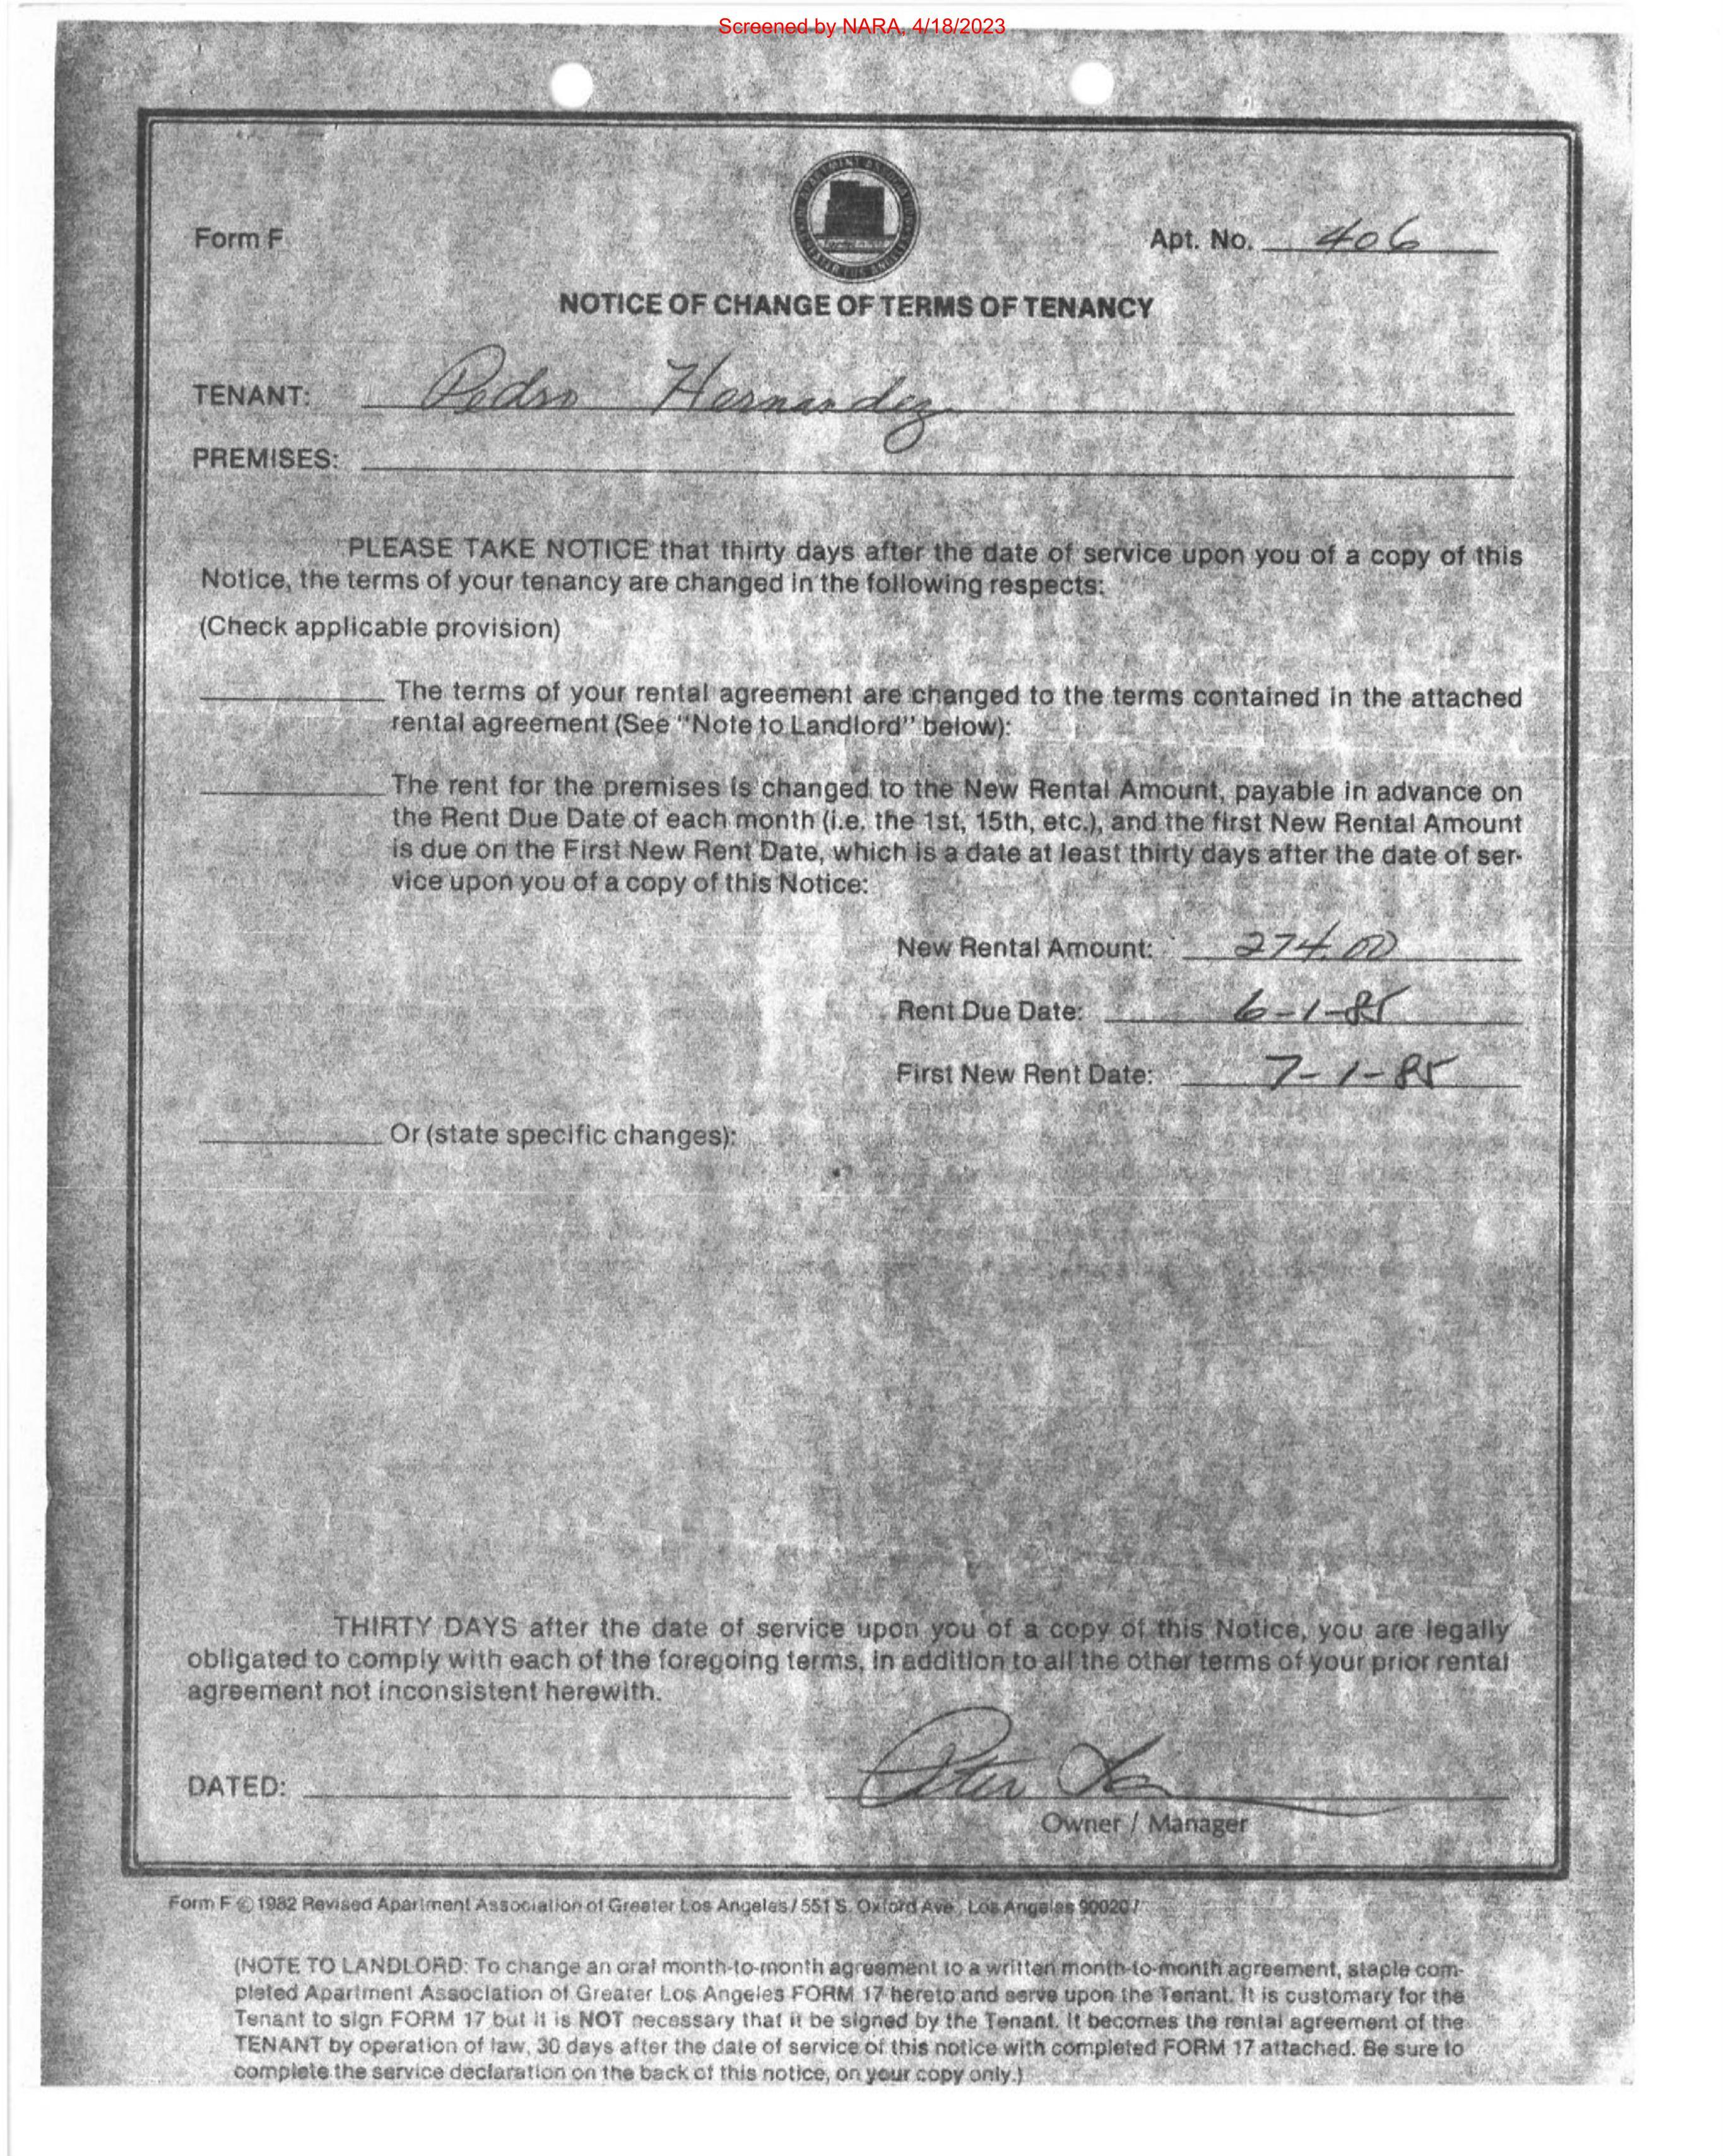 Screened by NARA, 4/18/2023
Form F
Apt. No. 406
NOTICE OF CHANGE OF TERMS OF TENANCY
TENANT: Pedro Hernandez
PREMISES:
PLEASE TAKE NOTICE that thirty days after the date of service upon you of a copy of this
Notice, the terms of your tenancy are changed in the following respects:
(Check applicable provision)
The terms of your rental agreement are changed to the terms contained in the attached
rental agreement (See "Note to Landlord" below):
The rent for the premises is changed to the New Rental Amount, payable in advance on
the Rent Due Date of each month (i.e. the 1st, 15th, etc.), and the first New Rental Amount
is due on the First New Rent Date, which is a date at least thirty days after the date of ser-
vice upon you of a copy of this Notice:
New Rental Amount: 274.00
Rent Due Date: 6-1-85
First New Rent Date: 7-1-85
Or (state specific changes):
THIRTY DAYS after the date of service upon you of a copy of this Notice, you are legally
obligated to comply with each of the foregoing terms, in addition to all the other terms of your prior rental
agreement not inconsistent herewith.
DATED:
Owner / Manager
Form F © 1982 Revised Apartment Association of Greater Los Angeles / 551 S. Oxford Ave., Los Angeles 90020 /
(NOTE TO LANDLORD: To change an oral month-to-month agreement to a written month-to-month agreement, staple com-
pleted Apartment Association of Greater Los Angeles FORM 17 hereto and serve upon the Tenant. It is customary for the
Tenant to sign FORM 17 but it is NOT necessary that it be signed by the Tenant. It becomes the rental agreement of the
TENANT by operation of law, 30 days after the date of service of this notice with completed FORM 17 attached. Be sure to
complete the service declaration on the back of this notice, on your copy only.)